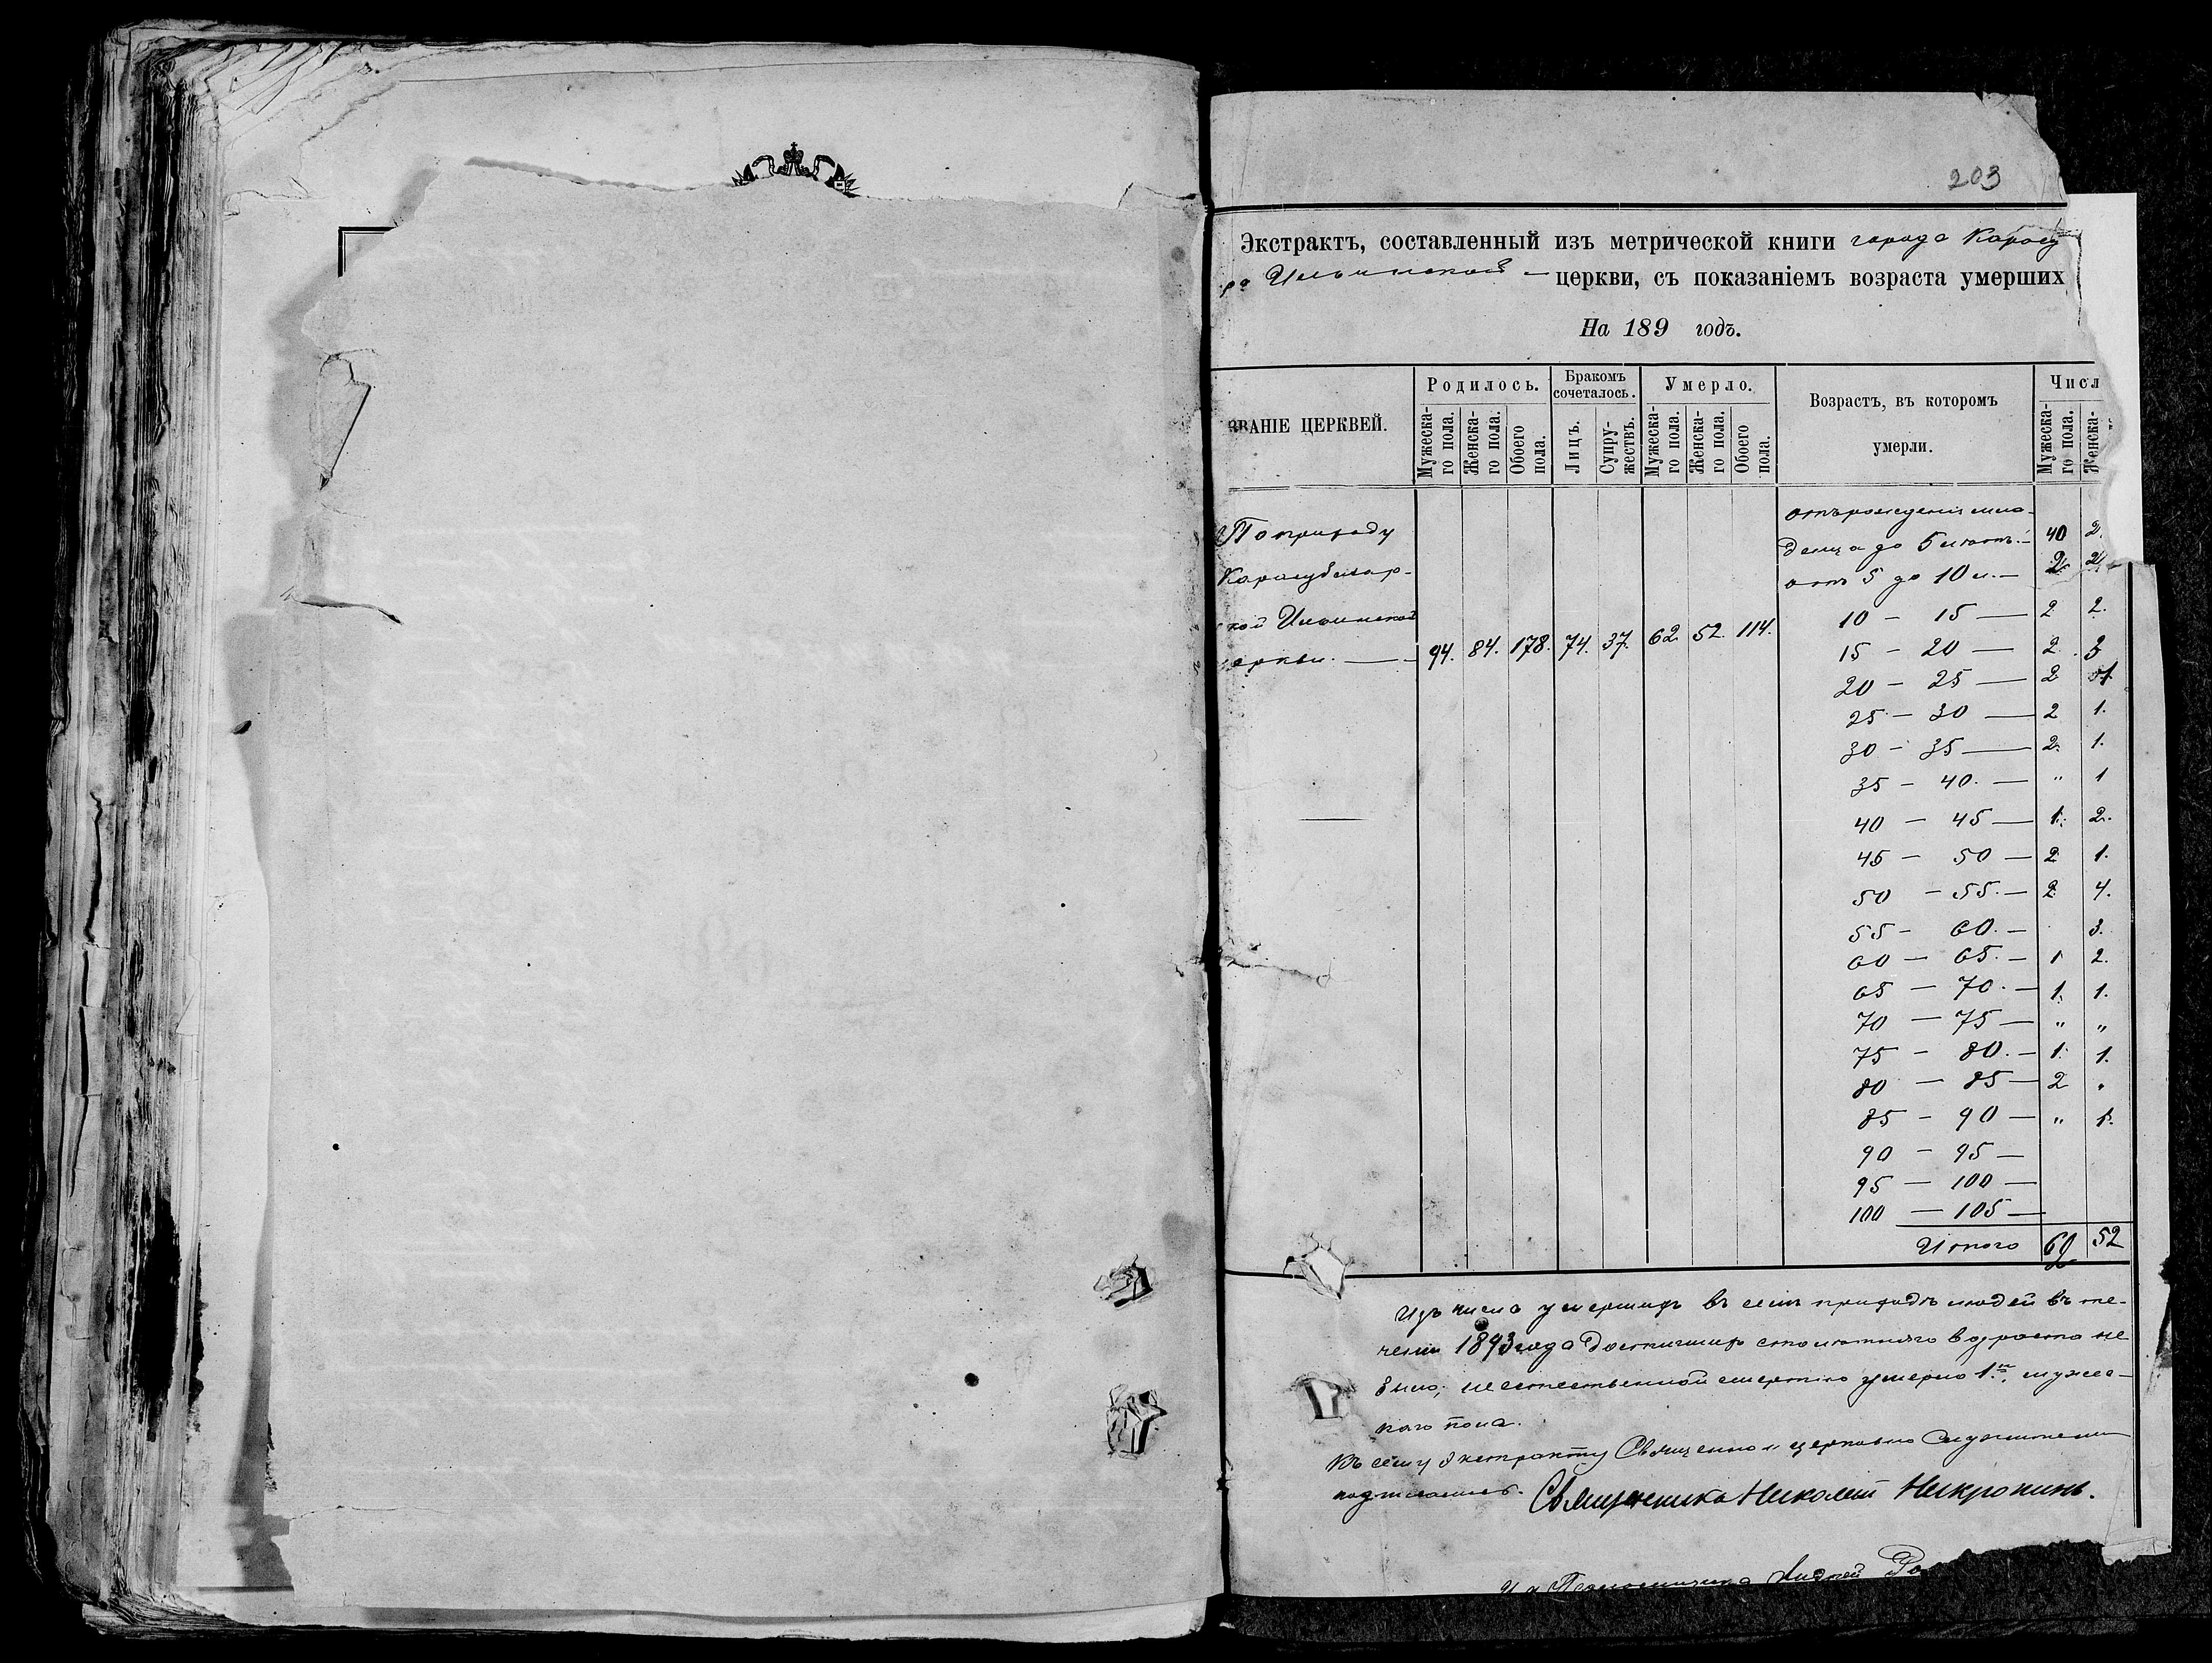 203
Экстрактъ, составленный изъ метрической книги города Карасу
ра Ильинской — церкви, съ показаніемъ возраста умерших
На 189 годъ.
ЗВАНІЕ ЦЕРКВЕЙ.
Родилось.
Бракомъ сочеталось.
Умерло.
Возрастъ, въ которомъ умерли.
Числ
Мужеска-го пола.
Женска-го пола.
Обоего пола.
Лицъ.
Супру-жествъ.
Мужеска-го пола.
Женска-го пола.
Обоего пола.
Мужеска-го пола.
Женска-
По приходу
Карасубазар-
кой Ильинской
еркви. — 94. 84. 178. 74. 37. 62. 52. 114.
отъ рожденія мла-
денца до 5 лѣтъ. — 40 2
отъ 5 до 10 л. — 2 2
10 — 15 — 2 2.
15 — 20 — 2 3
20 — 25 — 2 1
25 — 30 — 2 1.
30 — 35 — 2. 1.
35 — 40. — " 1
40 — 45 — 1. 2.
45 — 50 — 2 1.
50 — 55. — 2 4.
55 — 60. — 3.
60 — 65. — 1 2.
65 — 70. — 1. 1.
70 — 75 — " "
75 — 80. — 1. 1.
80 — 85 — 2 "
85 — 90 — " 1.
90 — 95 —
95 — 100 —
100 — 105 —
Итого 62 52
Изъ числа умершихъ въ семъ приходѣ людей въ те-
ченіи 1893 года достигшихъ столѣтняго возраста не
было; неестественной смертію умерло 1. мужес-
каго пола.
Къ сему экстракту Священно и церковно служители
подписались. Священникъ Николай
И. д. Псаломщика Андрей